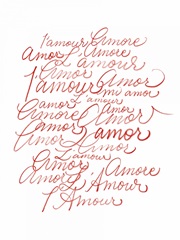 l'amour Amore
Amor L'Amore
L'Amor l'amour
l'amour Amor
Amor mi amor
amor l'amour
Amore Amor
amor amor
Amor L'amor
l'amour Amor
Amor L'Amore
Amore L'Amour
l'Amour